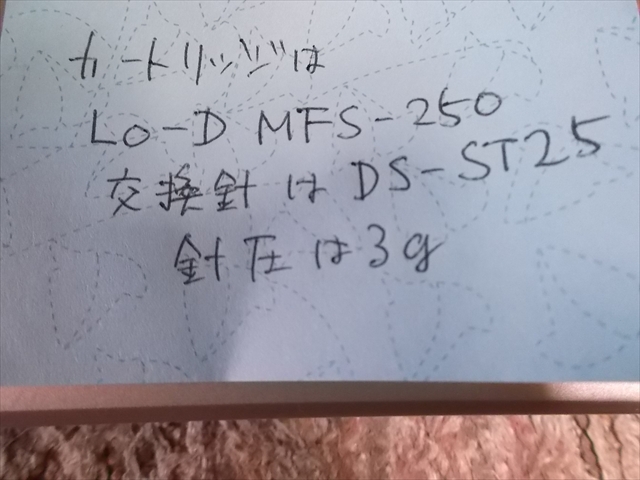 カートリッジは
LO-D MFS-250
交換針は DS-ST25
針圧は3g